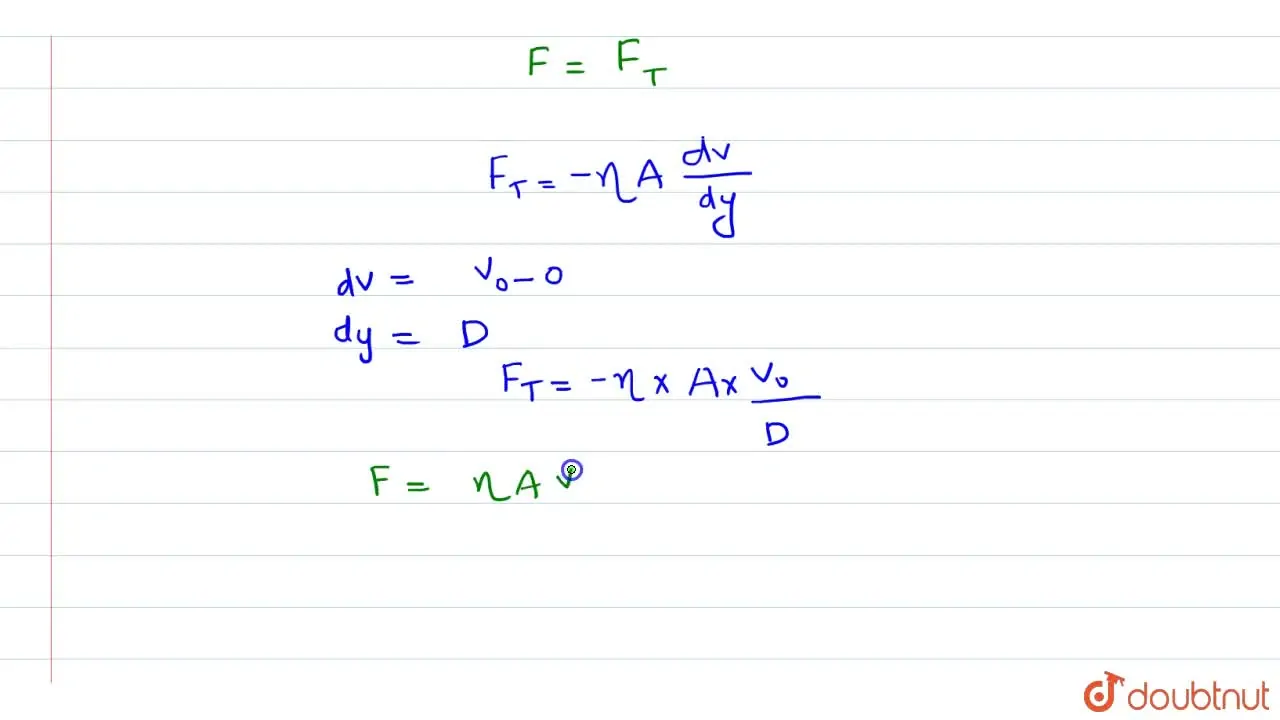 F = F_T
F_T = -η A dv/dy
dv = v₀ - 0
dy = D
F_T = -η × A × v₀/D
F = η A v
doubtnut